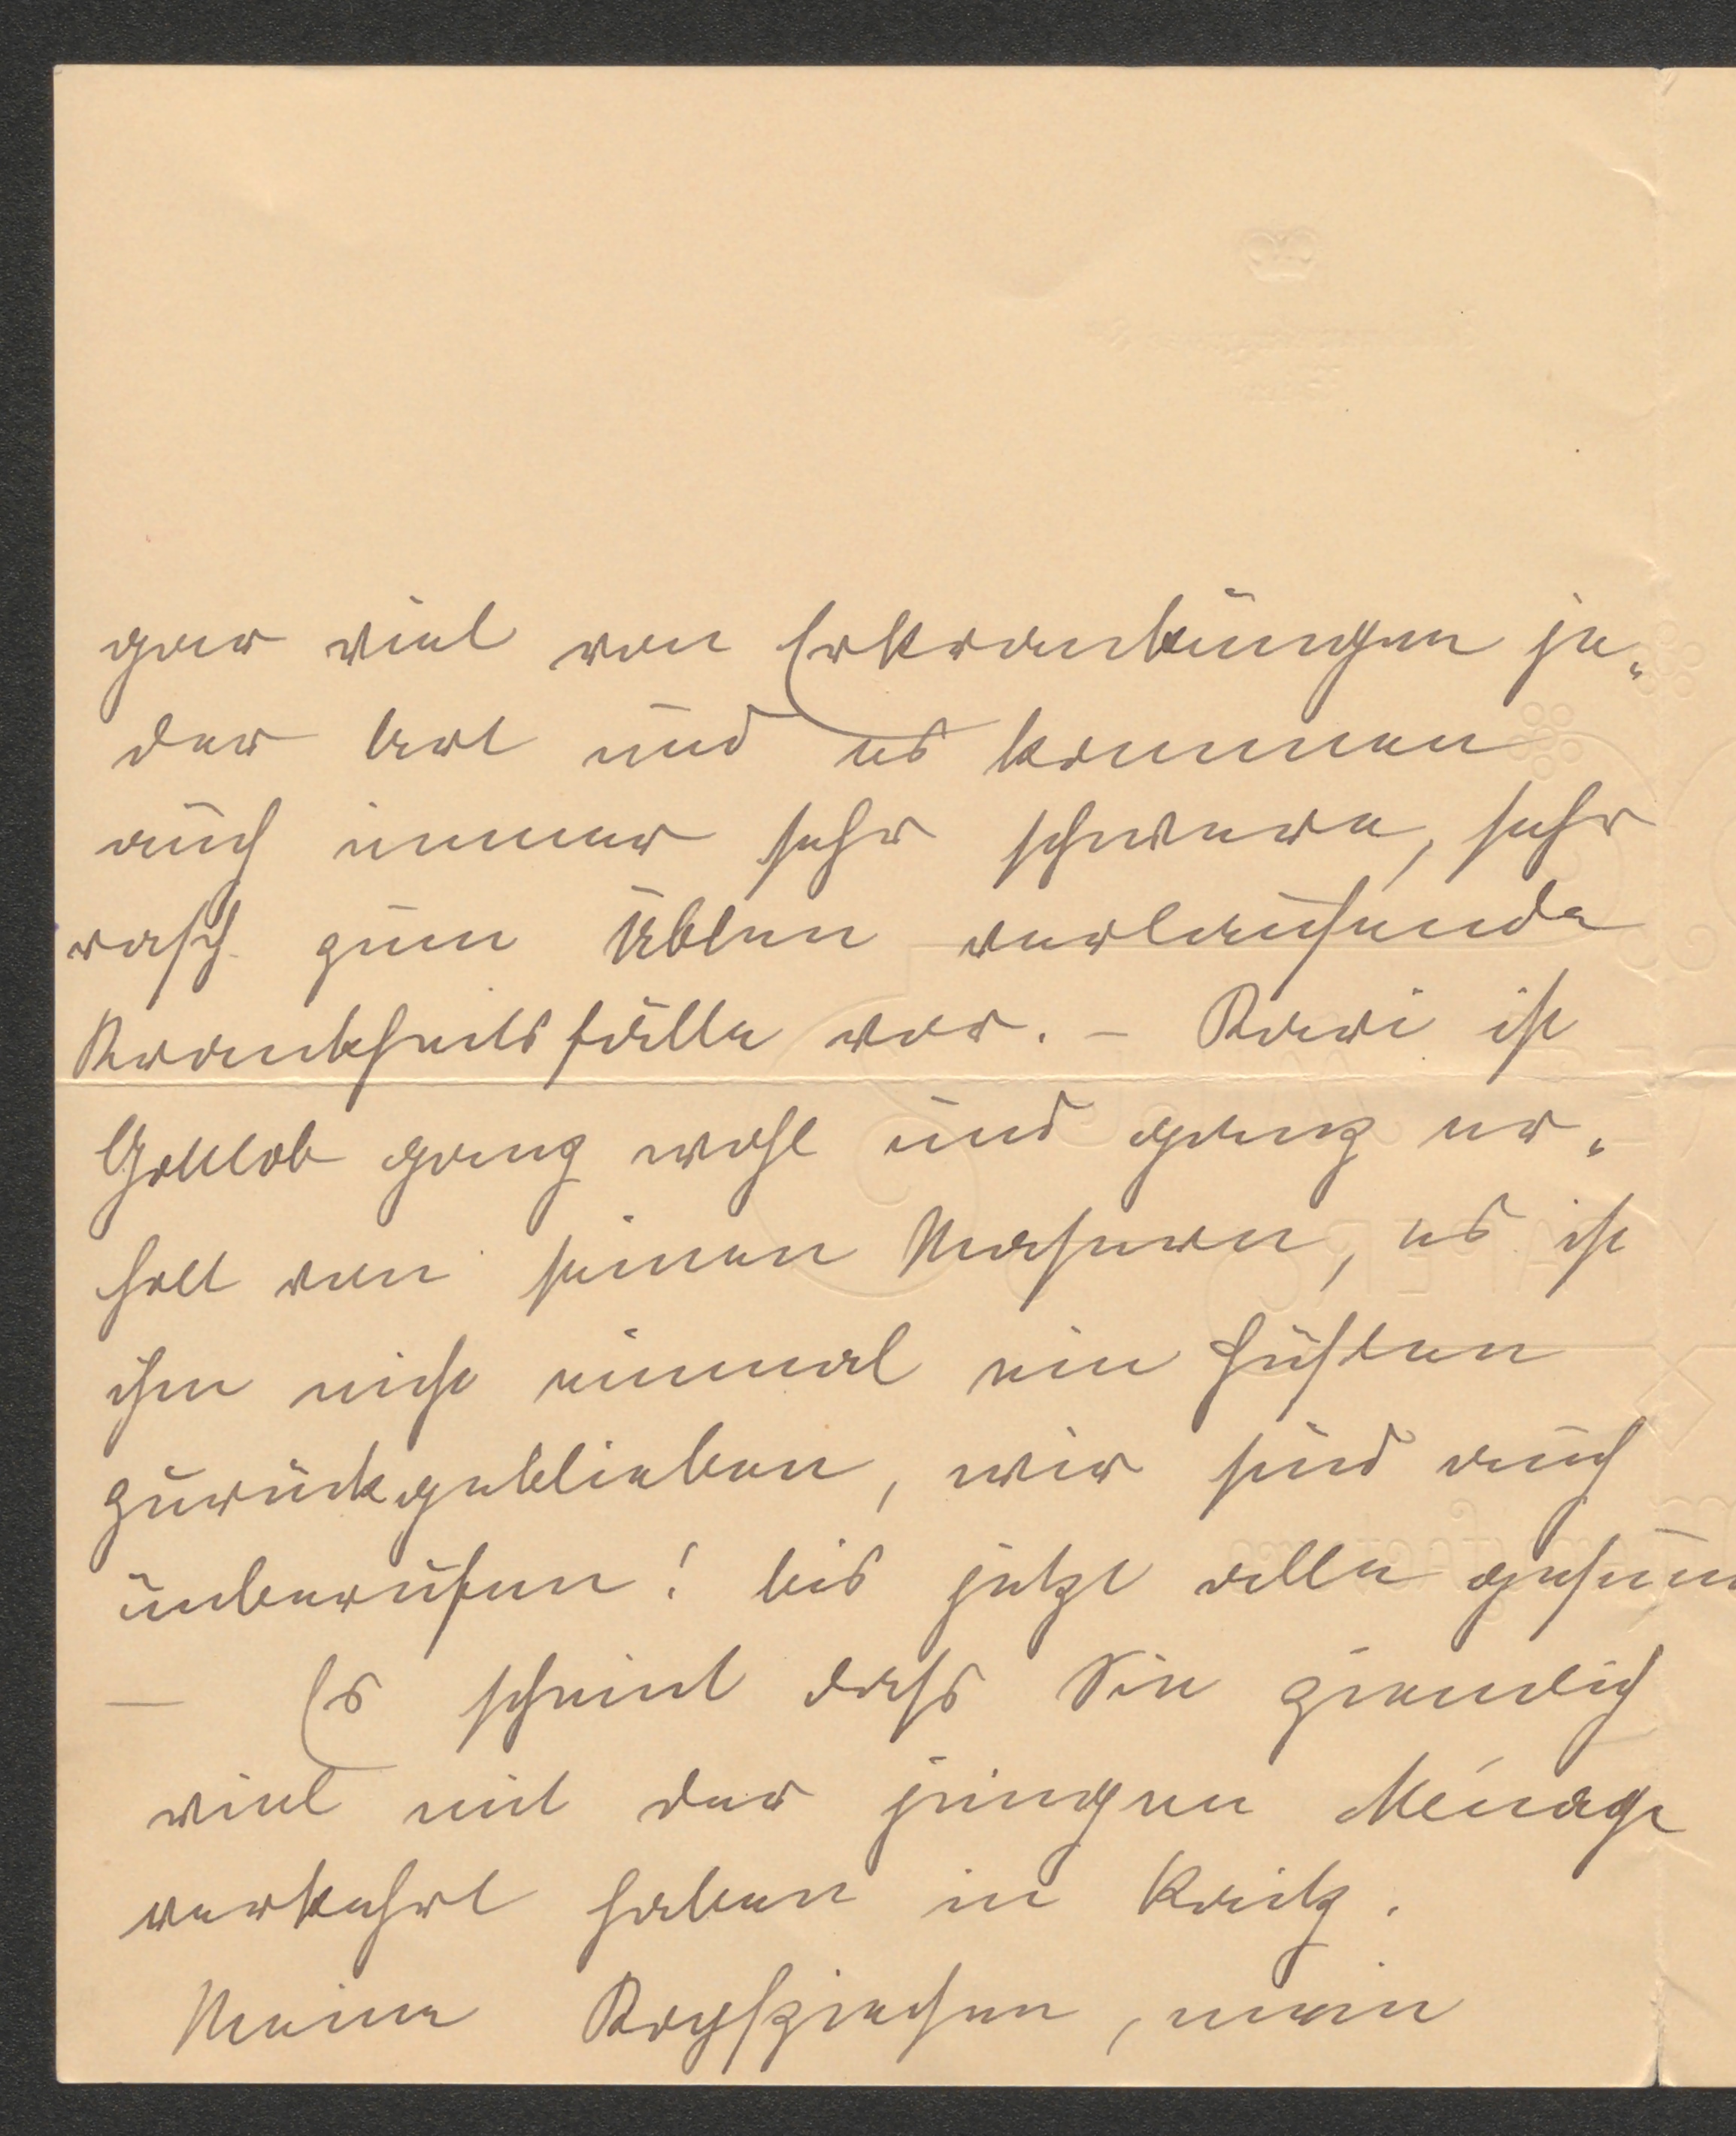 gar viel von Erkrankungen je„
der Art und es kommen
auch immer sehr schwere, sehr
rasch zum Üblen verlaufende
Krankheitsfälle vor. – Kari ist
Gottlob ganz wohl und ganz er„
holt von seinen Masern, es ist
ihm nicht einmal ein Husten
zurückgeblieben, wir sind auch
unberufen! bis jetzt alle gesun
— Es scheint dass Sie ziemlich
viel mit der jungen Ménage
verkehrt haben in
Meine Kopfziehen, mein